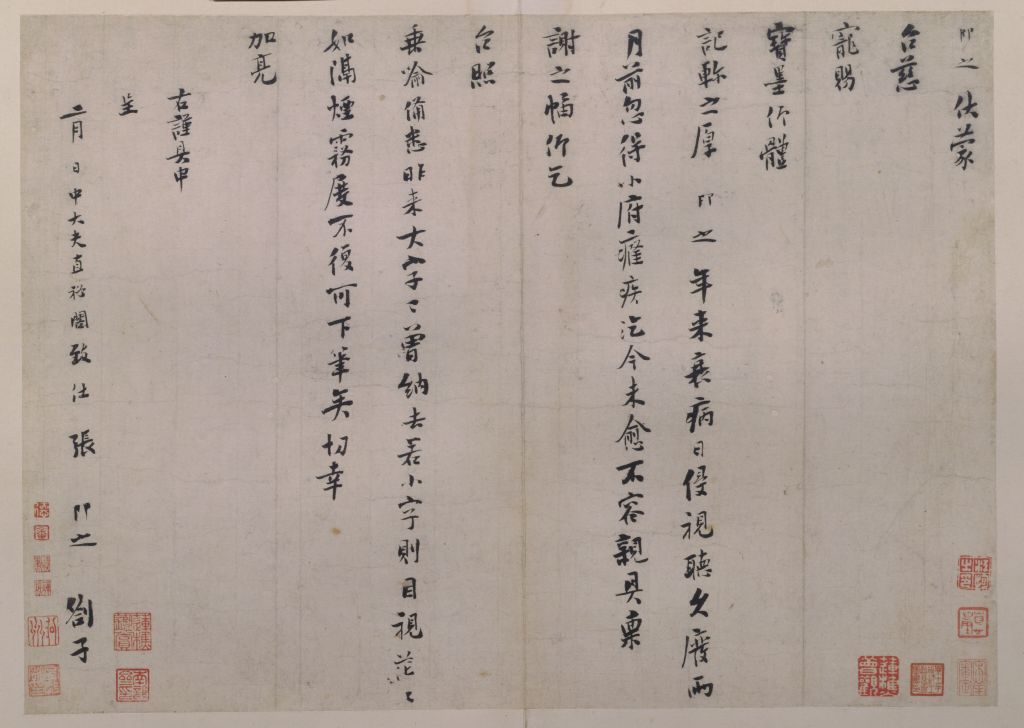 即之 伏蒙
台慈
寵賜
寶墨仰體
記軫之厚 即之 年来衰病日侵視聴久廢兩
月前忽得小府癃疾迄今未愈不容親具稟
謝之幅仰乞
台照
垂喻備悉昨来大字已曽納去若小字則目視茫々
如隔煙霧屡不復可下筆矣切幸
加亮
右謹具申
呈
二月 日中大夫直秘閣致仕 張 即之 劄子